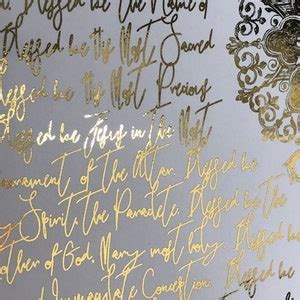 Blessed be the Name of
Blessed be His Most Sacred
Blessed be His Most Precious
Blessed be Jesus in The Most
crament of the Altar. Blessed be
y Spirit, the Paraclete. Blessed be the
other of God, Mary most holy. Blessed be
Immaculate Conception. Blessed